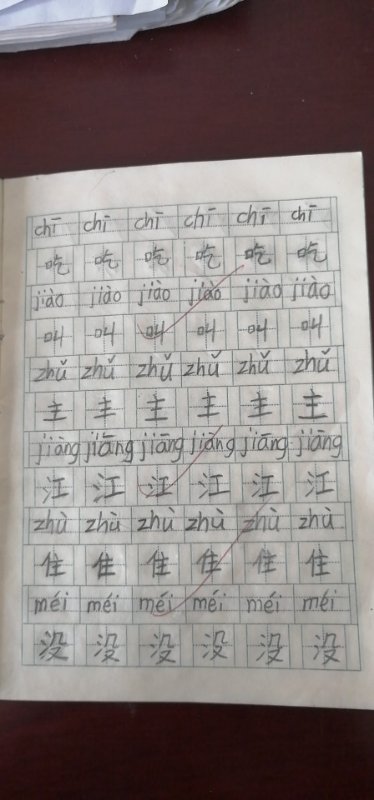 chī chī chī chī chī chī
吃 吃 吃 吃 吃 吃
jiào jiào jiào jiào jiào jiào
叫 叫 叫 叫 叫 叫
zhǔ zhǔ zhǔ zhǔ zhǔ zhǔ
主 主 主 主 主 主
jiāng jiāng jiāng jiāng jiāng jiāng
江 江 江 江 江 江
zhù zhù zhù zhù zhù zhù
住 住 住 住 住 住
méi méi méi méi méi méi
没 没 没 没 没 没